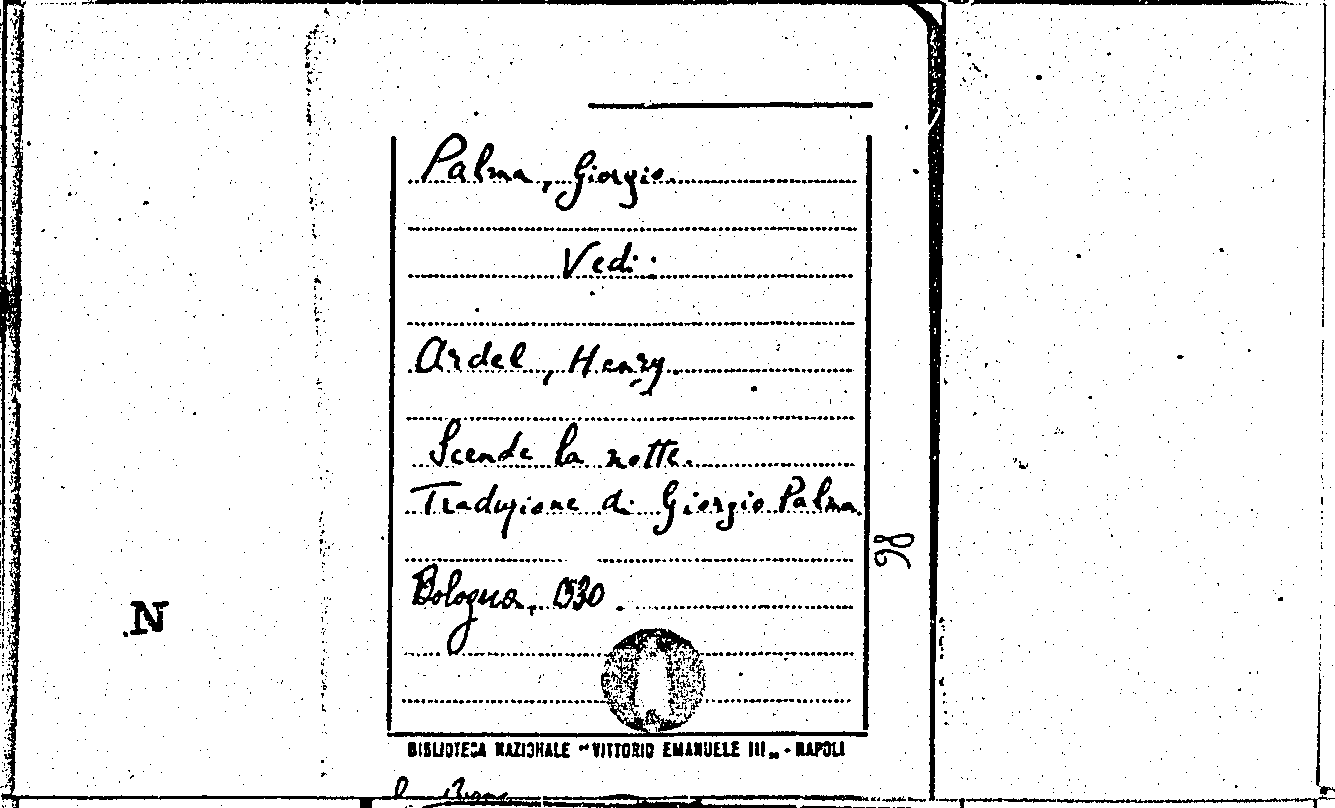 Palma, Giorgio.
Vedi:
Ardel, Henry.
Scende la notte.
Traduzione di Giorgio Palma.
Bologna, 1930.
98
N
BIBLIOTECA NAZIONALE "VITTORIO EMANUELE III„ - NAPOLI